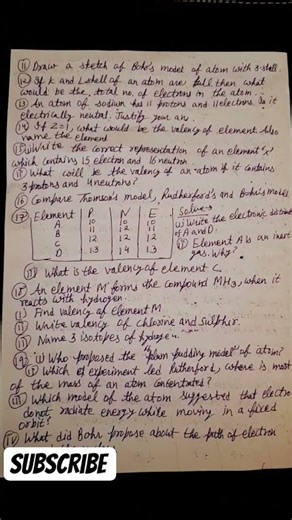 (11) Draw a sketch of Bohr's model of atom with 3-shell.
(12) If K and L shell of an atom are full then what
would be the total no. of electrons in the atom.
(13) An atom of sodium has 11 protons and 11 electrons. Is it
electrically neutral. Justify your ans.
(14) If Z=1, what would be the valency of element. Also
name the element
(15) Write the correct representation of an element 'x'
which contains 15 electron and 16 neutron.
What will be the valency of an atom if it contains
3 protons and 4 neutrons?
(16) Compare Thomson's model, Rutherford's and Bohr's model
(17) Element P N E Solve
A 10 10 10 (i) Write the electronic
B 11 12 11 of A and D.
C 12 12 12 (ii) Element A is an inert
D 13 14 13 gas. Why?
(iii) What is the valency of element C.
(18) An element M forms the compound MH3, when it
reacts with hydrogen.
(i) Find valency of element M
(ii) Write valency of chlorine and sulphur.
(iii) Name 3 isotopes of hydrogen.
(19) (i) Who proposed the "plum pudding model" of atom?
(ii) Which experiment led Rutherford, where is most
of the mass of an atom concentrated?
(iii) Which model of the atom suggested that electron
do not radiate energy while moving in a fixed
orbit?
(iv) What did Bohr propose about the path of electron
SUBSCRIBE